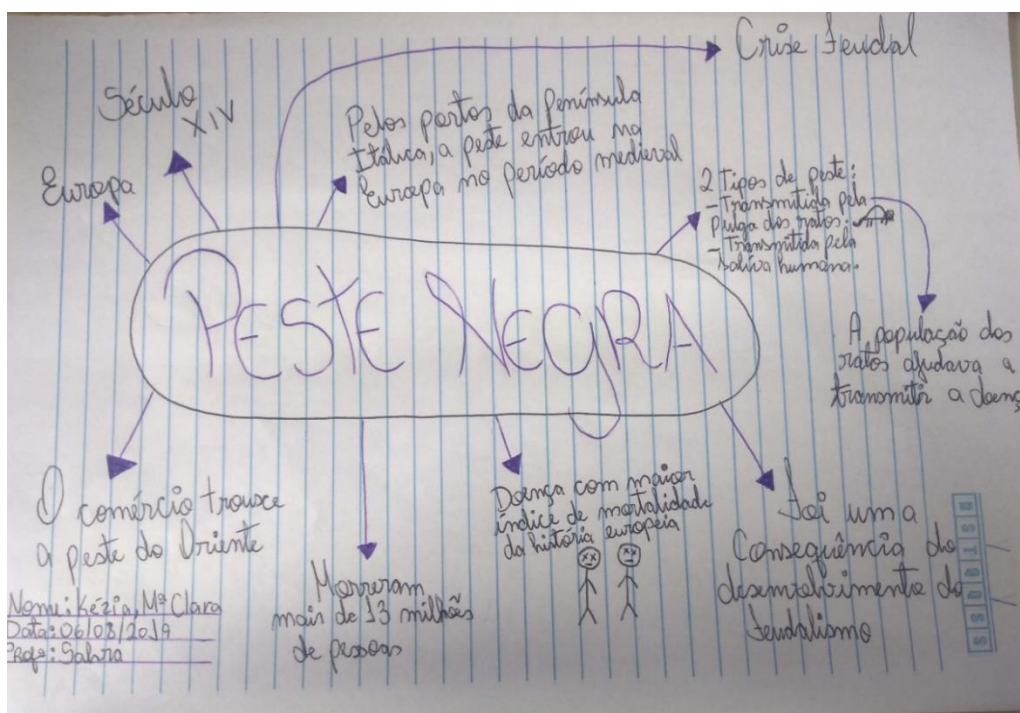 Crise Feudal
Século
XIV
Europa
Pelos portos da Península
Itálica, a peste entrou na
Europa no período medieval
2 Tipos de peste:
- Transmitida pela
pulga dos ratos.
- Transmitida pela
saliva humana.
PESTE NEGRA
A população dos
ratos ajudava a
transmitir a doença
O comércio trouxe
a peste do Oriente
Morreram
mais de 13 milhões
de pessoas
Doença com maior
índice de mortalidade
da história europeia
Foi uma
Consequência do
desenvolvimento do
feudalismo
Nome: Kézia, Mª Clara
Data: 06/08/2019
Profª: Sahra
D S T Q Q S S